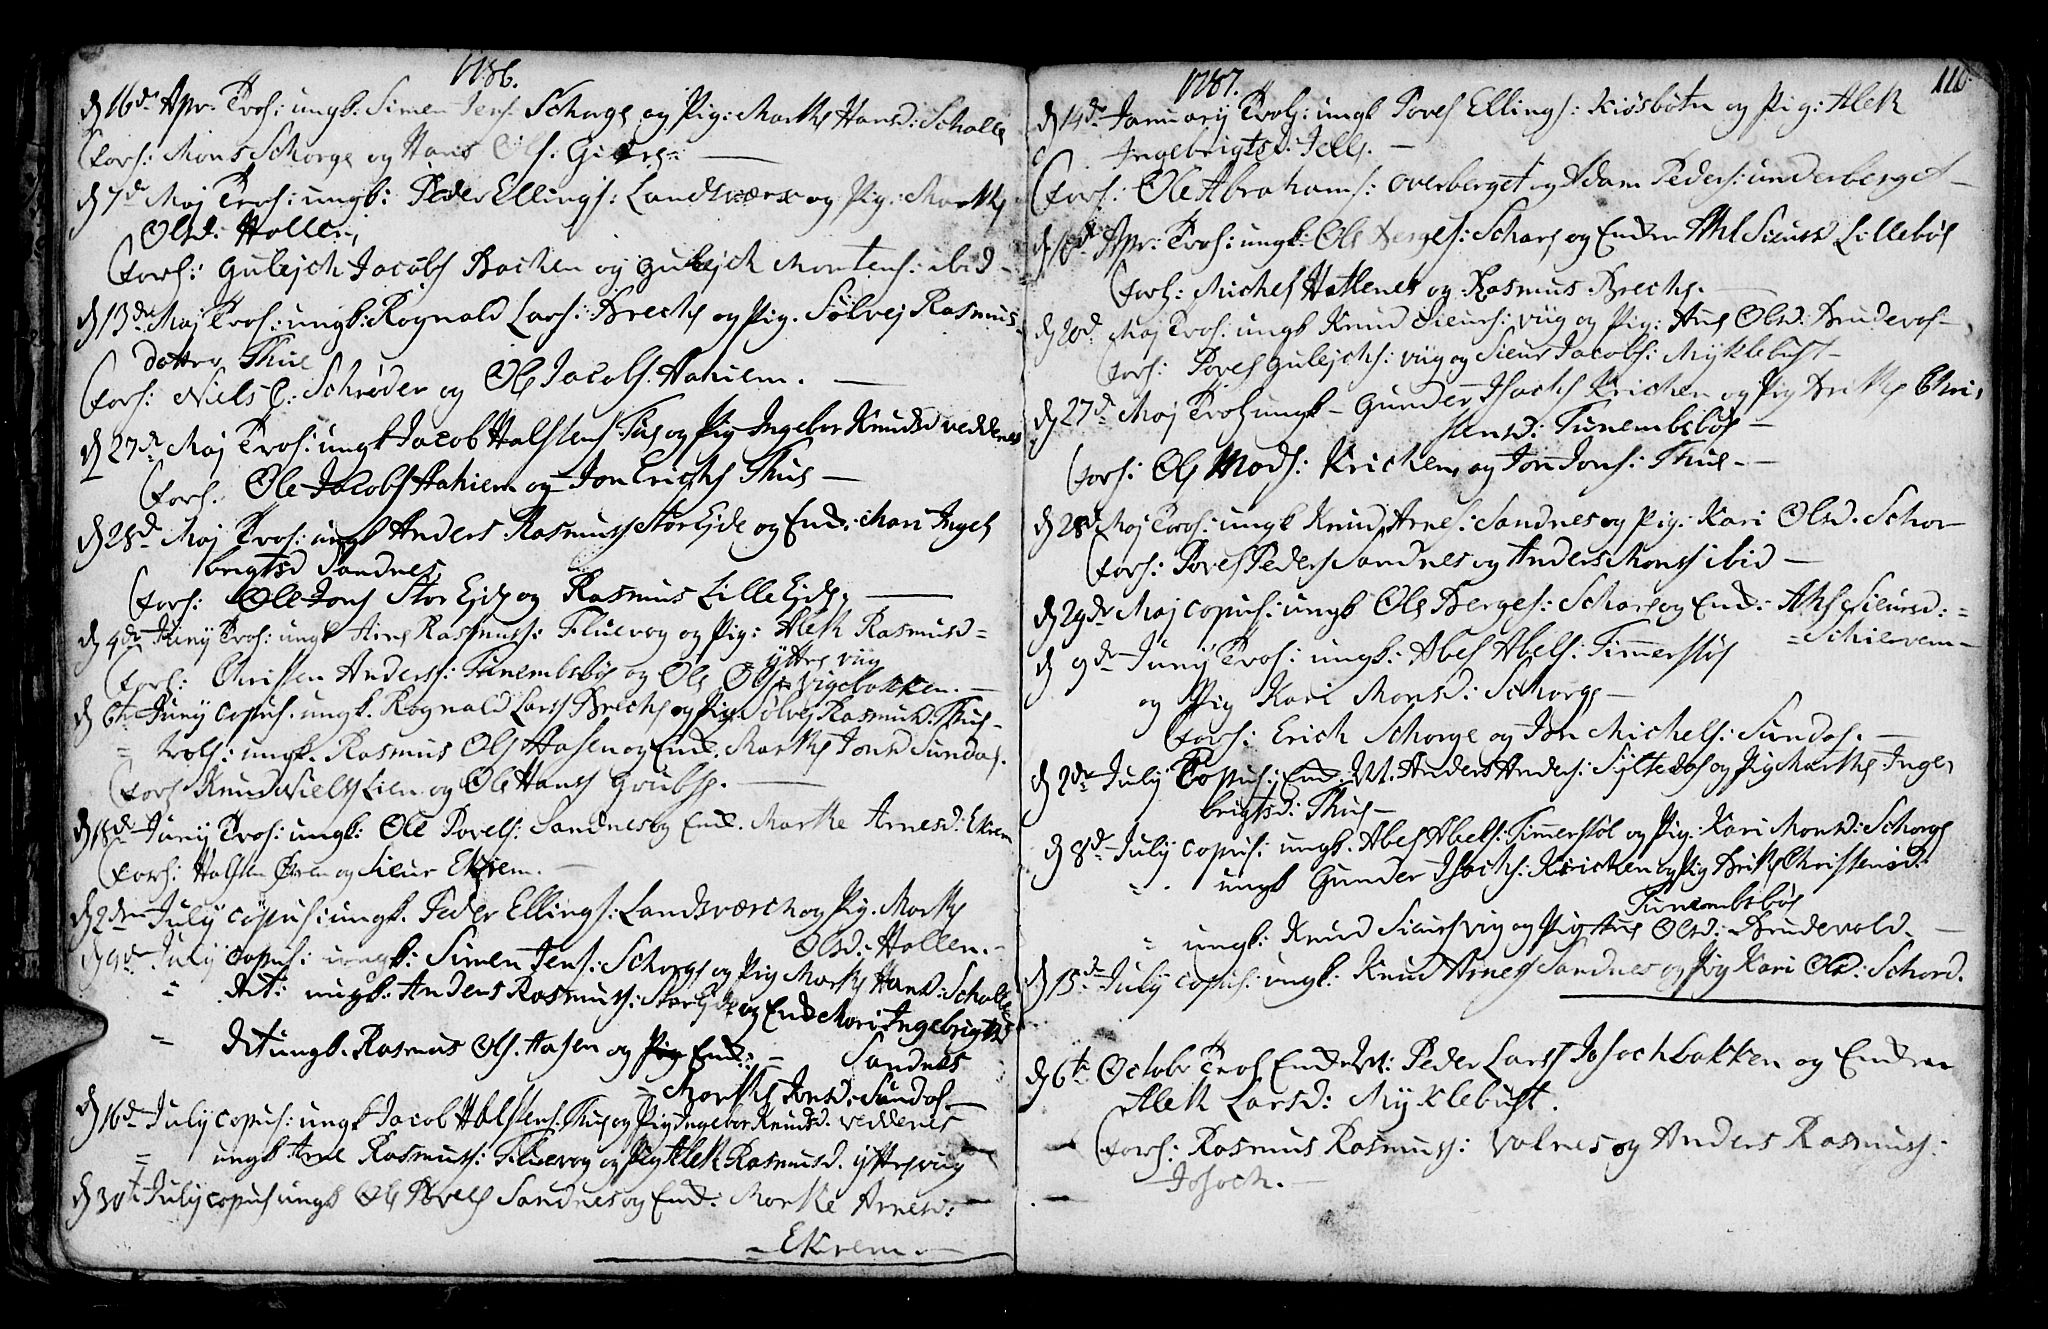 1786.
d 16de Apr. Trol: ungk: Simen Jens: Schorge og Pig: Marthe Hansd: Scholle
Forl: Mons Schorge og Hans Ols: Giære
d 7de Maj Trol: ungk: Peder Ellings: Landsværk og Pig: Marthe
Olsd: Hollen,
Forl: Gulejch Jacobs Bachen og Gulejch Mortens: ibid
d 13de Maj Trol: ungk: Rognald Lars: Breche og Pig. Sølvej Rasmus
datter Thue
Forl: Niels C: Schrøder og Ole Jacobs: Hahiem.
d 27de Maj Trol: ungk Jacob Halstens: Tue og Pig Ingebor Knudsd veddenes
Forl. Ole Jacobs Hahiem og Jon Erichs Thue
d 28de Maj Trol: ungk Anders Rasmuss Stor Ejde og Enk: Mari Inge
brigtsd Sandnes
Forl: Ole Jons Stor Ejde og Rasmus Lille Ejde
d 4de Juny Trol: ungk Arne Rasmuss: Fluevog og Pig: Alek Rasmusd=
ÿttre viig
Forl: Christen Anders: Tunembsbøe og Ole Ols: Vigebakken.
d 6te Juny copul. ungk. Rognald Lars Breche og Pig. Sølvej Rasmusd. Thue
= trol: ungk. Rasmus Ols Hasen og Enk. Marthe Jonsd Sundal.
Forl Knud Niels Lien og Ole Hans Grubse.
d 18de Juny Trol: ungk: Ole Povels: Sandnes og Enk. Marthe Arnesd: Ekrem
Forl: Halsten Øren og Sieur Ekrem.
d 2den July copul: ungk. Peder Ellings: Landsværch og Pig. Marthe
Olsd: Hollen.
d 9de July copul: ungk: Simen Jens: Schorge og Pig Marthe Hansd: Scholle
= det: ungk: Anders Rasmuss: Stor Ejde og Enk Mari Ingebrigtsd
= det ungk. Rasmus Ols. Hasen og Pig Enk: Sandnes
Marthe Jonsd: Sundal
d 16de July copul: ungk Jacob Halstens: Tue og Pig Ingebor Knudsd. veddenes
= ungk Arne Rasmuss: Fluevog og Pig Alek Rasmusd. ÿttre viig
d 30te July copul ungk Ole Povels Sandnes og Enk: Marthe Arnesd:
Ekrem
1787.
110.
d 14de January Trol: ungk Povel Ellings: Kiøsbotn og Pig: Alek
Ingebrigtsd: Jelle.
Forl: Ole Abrahams: overberget og Adam Peders: underberget
d 8de Apr: Trol: ungk: Ole Berges: Schare og Enken Ahl Sieursd Lillebøe
Forl: Michel Hatlenes og Rasmus Breche.
d 20de Maj Trol: ungk Knud Sieurs: viig og Pig: Ane Olsd: Brudevol
Forl: Povel Gulejchs: viig og Sieur Jacobs: Mÿklebust
d 27de Maj Trol ungk Gunder Isachs Krichen og Pig Brithe Chri
stensd: Tunembsbøe
Forl: Ole Mads: Krichen og Jon Jons: Thue
d 28de Maj Trol: ungk Knud Arnes: Sandnes og Pig: Kari Olsd. Schor
Forl: Povel Peders Sandnes og Anders Mons ibid
d 29de Maj copul: ungk Ole Berges: Schare og Enk: Ahl Sieursd: =
=Schievem
d 9de Juny Trol: ungk: Abel Abels: Timerstøl
og Pig Kari Monsd: Schorge
Forl: Erich Schorge og Jon Michels: Sundal.
d 2de July Copul: Enk: M. Anders Anders: Sÿltedal og Pig Marthe Inge
brigtsd: Thue
d 8de July copul: ungk. Abel Abels: Timerstøl og Pig: Kari Monsd: Schorge
ungk Gunder Isachs: Krichen og Pig Brithe Christensd:
Tunembsbøe
= ungk: Knud Sieurs viig og Pig Ane Olsd: Brudevold
d 15de July copul: ungk: Knud Arnes Sandnes og Pig Kari Olsd: Schord.
d 6te October Trol Enke M: Peder Lars Josochbakken og Enken
Alek Larsd: Mÿklebust.
Forl: Rasmus Rasmuss: Valnes og Anders Rasmuss:
Josoch.